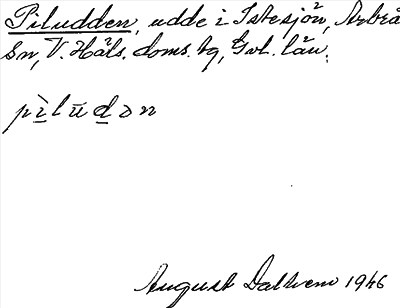 Piludden, udde i Istesjön, Arbrå
Sn, V. Häls. doms. bg, Gvl. län.
pìlūdən
August Dahlvem 1946